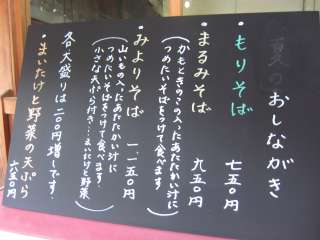 夏のおしながき
・もりそば 七五〇円
・まるみそば 九五〇円
(かもときのこの入ったあたたかい汁に
つめたいそばをつけて食べます)
・みよりそば 一一五〇円
(山いもの入ったあたたかい汁に
つめたいそばをつけて食べます。
小さな天ぷら付き…まいたけと野菜)
各大盛りは二〇〇円増しです。
・まいたけと野菜の天ぷら
六五〇円